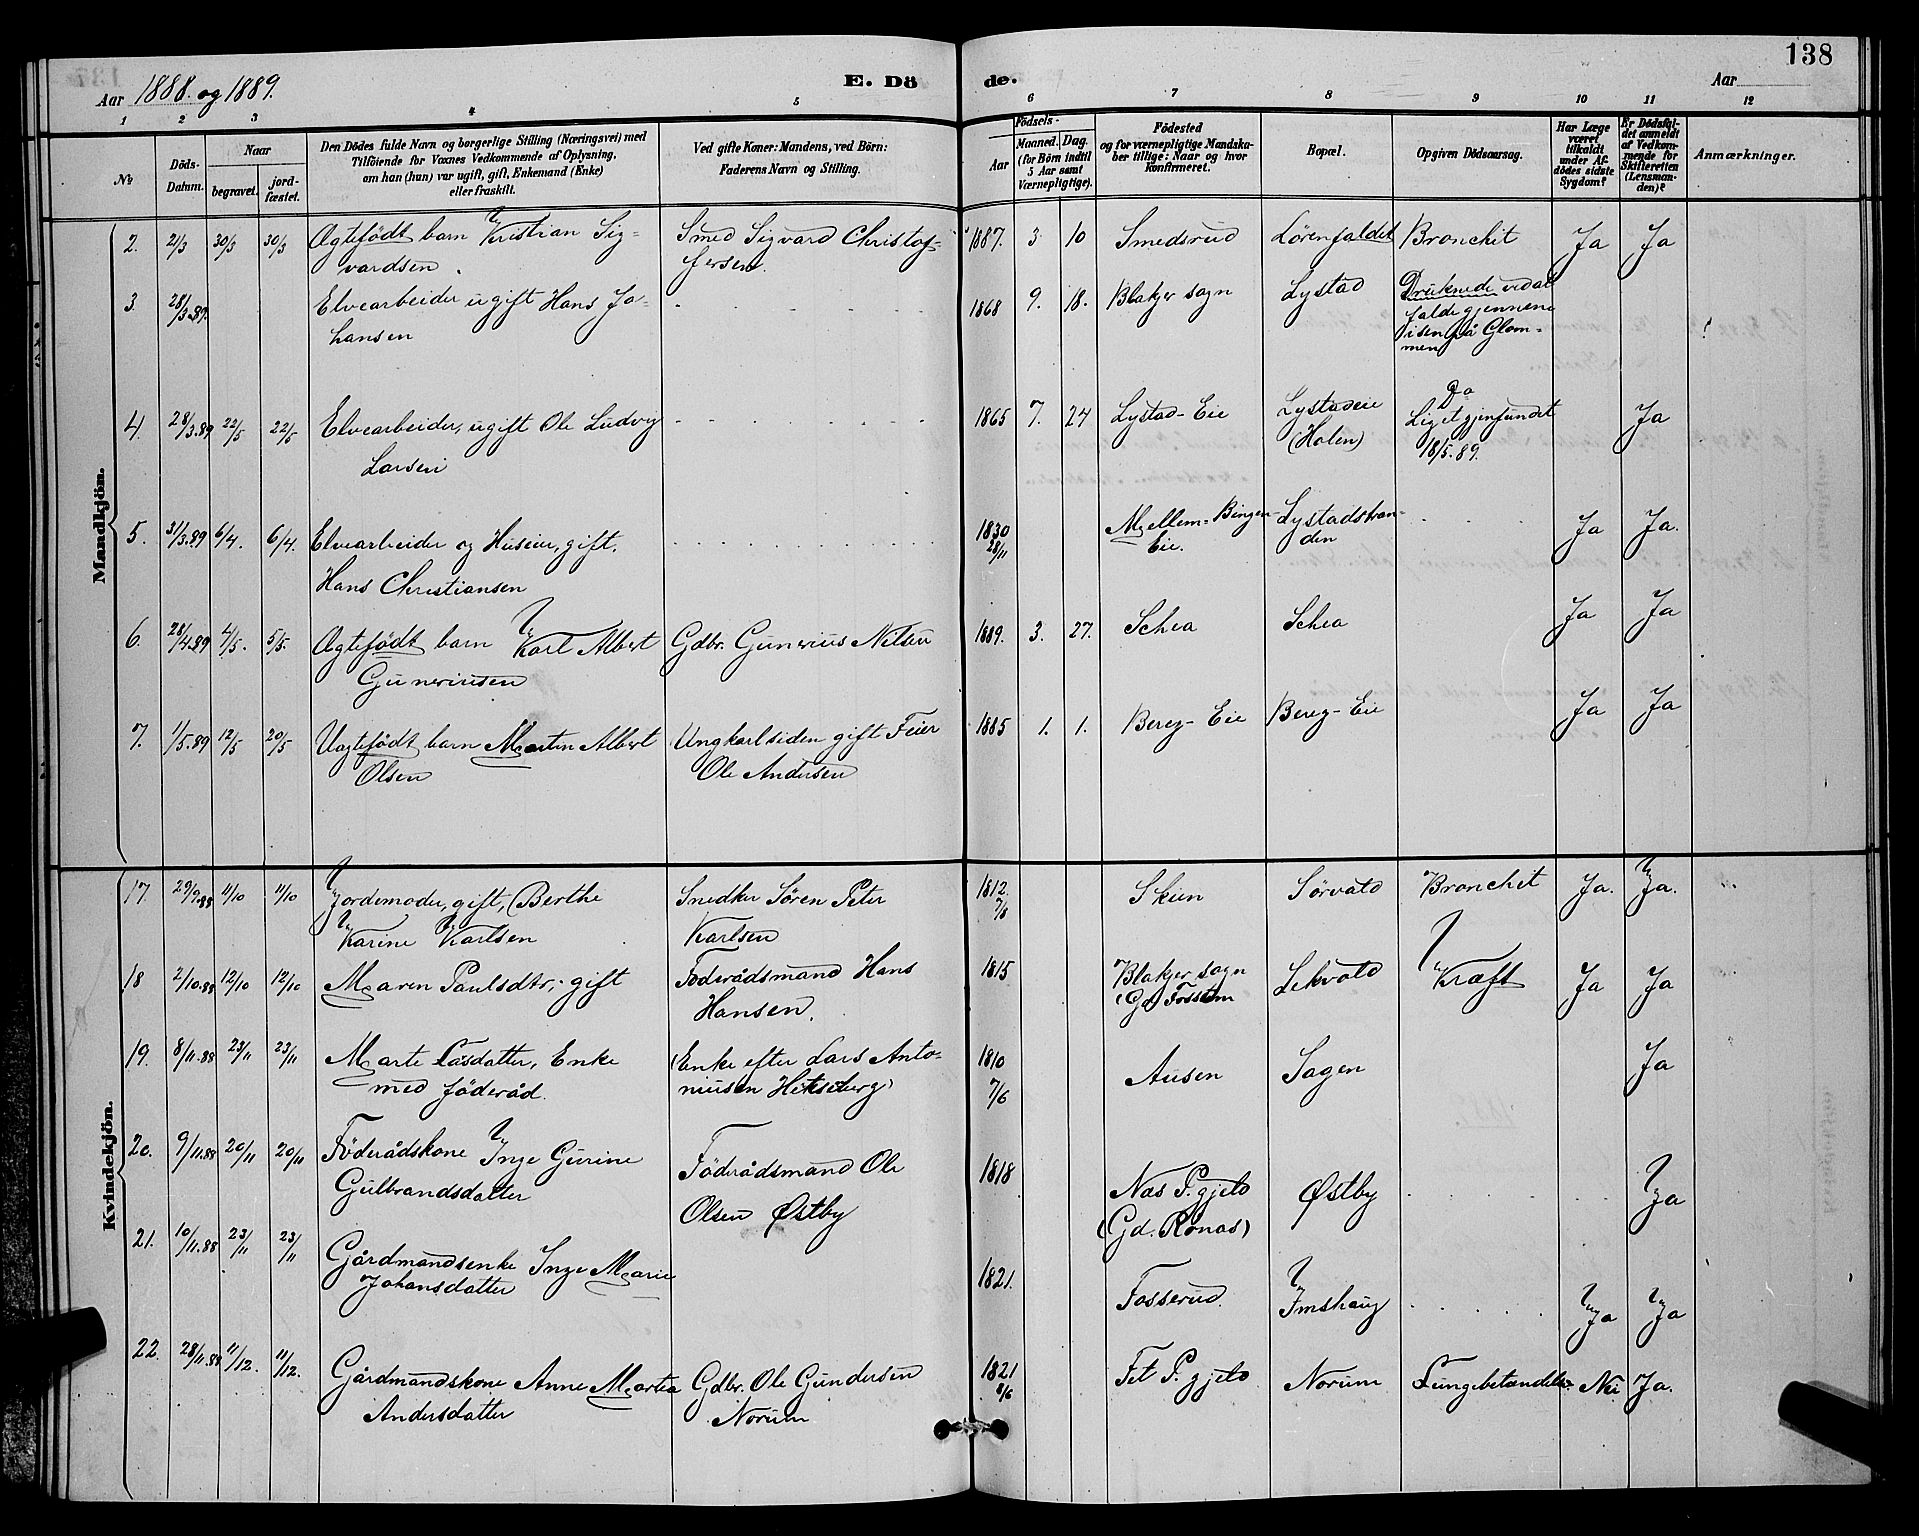 138
Aar 1888 og 1889.
E. Dö
de.
Aar
1 2 3 4 5 6 7 8 9 10 11 12
№
Döds-Datum.
Naar
begravet.
jordfæstet.
Den Dödes fulde Navn og borgerlige Stilling (Næringsvei) med
Tilföiende for Voxnes Vedkommende af Oplysning,
om han (hun) var ugift, gift, Enkemand (Enke)
eller fraskilt.
Ved gifte Koner: Mandens, ved Börn:
Faderens Navn og Stilling.
Födsels-
Aar
Maaned. Dag.
(for Börn indtil
5 Aar samt
Værnepligtige).
Födested
og for værnepligtige Mandska-
ber tillige: Naar og hvor
konfirmeret.
Bopæl.
Opgiven Dödsaarsag.
Har Læge
været
tilkaldt
under Af-
dödes sidste
Sygdom?
Er Dödsfal-
det anmeldt
af Vedkom-
mende for
Skifteretten
(Lensman-
den)?
Anmærkninger.
Mandkjön.
2. 21/3 30/3 30/3 Ægtefödt barn Kristian Sig- Smed Sigvard Christof- 1887. 3 10 Smedsrud Lörenfaldet Bronchit Ja Ja
vardsen. fersen.
3. 28/3.89. Elvearbeider ugift Hans Jo- 1868 9. 18. Blakjer sogn Lystad Druknede ved at
hansen falde gjennem
isen på Glom-
men
4. 28/3.89 22/5 22/5 Elvearbeider, ugift Ole Ludvig 1865 7. 24 Lystad-Eie Lystadeie Do Ja
Larsen (Holen) Liget gjenfundet
18/5.89.
5. 31/3.89 6/4. 6/4. Elvearbeider og Huseier, gift, 1830 Mellem-Bingen- Lystadstran- Ja Ja.
Hans Christiansen 28/11 Eie. den
6. 28/4.89 4/5. 5/5. Ægtefödt barn Karl Albert Gdbr. Gunerius Nilsen 1889. 3. 27. Schea Schea Ja Ja
Guneriusen
7. 1/5.89 12/5 20/5 Uægtefödt barn Martin Albert Ungkarl siden gift Feier 1885 1. 1. Berg-Eie Berg-Eie Ja Ja
Olsen Ole Andersen
Kvindekjön.
17. 29/9.88 11/10 11/10 Jordemoder, gift, Berthe Snedker Sören Peter 1812. Skien Sörvald Bronchit Ja. Ja.
Karine Karlsen Karlsen 7/8
18 2/10.88 12/10 12/10 Maren Paulsdtr, gift Föderådsmand Hans 1815 Blakjer sogn Lekvold Kræft Ja Ja
Hansen. (Gd Fossum
19. 8/11.88 23/11 23/11 Marte Låsdatter, Enke (Enke efter Lars Anto- 1810 Ausen Sagen Ja
med föderåd. niusen Hekseberg) 7/6
20. 9/11.88 20/11 20/11 Föderådskone Inge Gurine Föderådsmand Ole 1818 Næs P.gjeld Østby Ja
Gulbrandsdatter Olsen Østby (Gd. Rönås)
21. 10/11.88 23/11 23/11 Gårdmandsenke Inge Marie 1821. Fosserud. Imshaug Ja Ja
Johansdatter
22. 28/11.88 11/12. 11/12. Gårdmandskone Anne Martea Gdbr. Ole Gundersen 1821 Fet P.gjeld Norum Lungebetændelse Nei Ja.
Andersdatter Norum 8/6